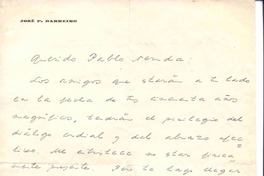 JOSÉ P. BARREIRO
Querido Pablo Neruda:
Los amigos que estarán a tu lado
en la fecha de tus cincuenta años
magníficos, tendrán el privilegio del
diálogo cordial y del abrazo efec
tivo. Me entristece no estar física
mente presente. Pero te hago llegar